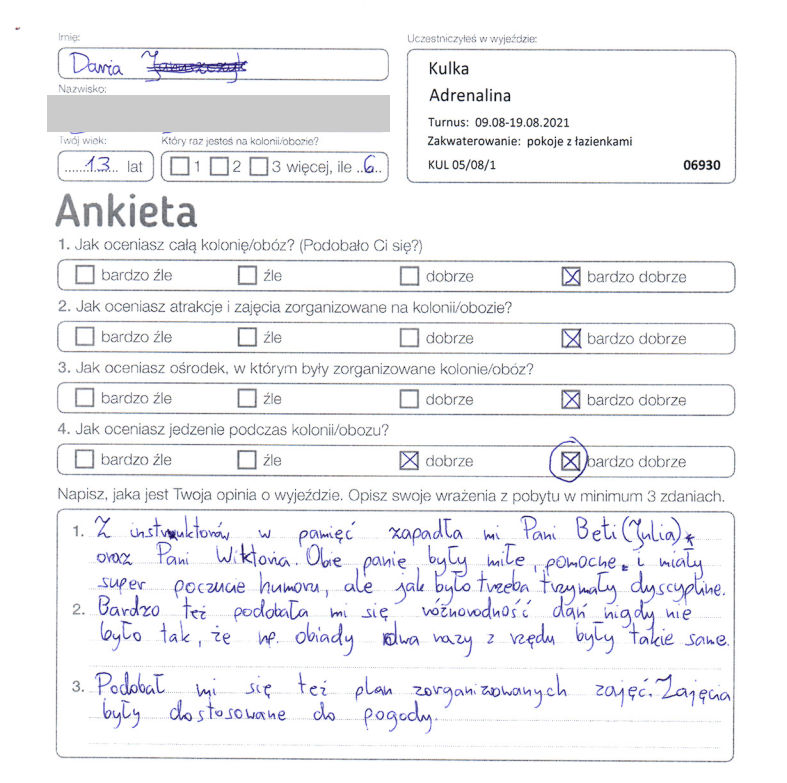 Imię:
Uczestniczyłeś w wyjeździe:
Daria
Kulka
Adrenalina
Nazwisko:
Turnus: 09.08-19.08.2021
Zakwaterowanie: pokoje z łazienkami
KUL 05/08/1 06930
Twój wiek: Który raz jesteś na kolonii/obozie?
13 lat 1 2 3 więcej, ile 6
Ankieta
1. Jak oceniasz całą kolonię/obóz? (Podobało Ci się?)
bardzo źle źle dobrze bardzo dobrze
2. Jak oceniasz atrakcje i zajęcia zorganizowane na kolonii/obozie?
bardzo źle źle dobrze bardzo dobrze
3. Jak oceniasz ośrodek, w którym były zorganizowane kolonie/obóz?
bardzo źle źle dobrze bardzo dobrze
4. Jak oceniasz jedzenie podczas kolonii/obozu?
bardzo źle źle dobrze bardzo dobrze
Napisz, jaka jest Twoja opinia o wyjeździe. Opisz swoje wrażenia z pobytu w minimum 3 zdaniach.
1. Z instruktorów w pamięć zapadła mi Pani Beti (Julia)
oraz Pani Wiktoria. Obie panie były miłe, pomocne i miały
super poczucie humoru, ale jak było trzeba trzymały dyscyplinę.
2. Bardzo też podobała mi się różnorodność dań nigdy nie
było tak, że np. obiady dwa razy z rzędu były takie same.
3. Podobał mi się też plan zorganizowanych zajęć. Zajęcia
były dostosowane do pogody.